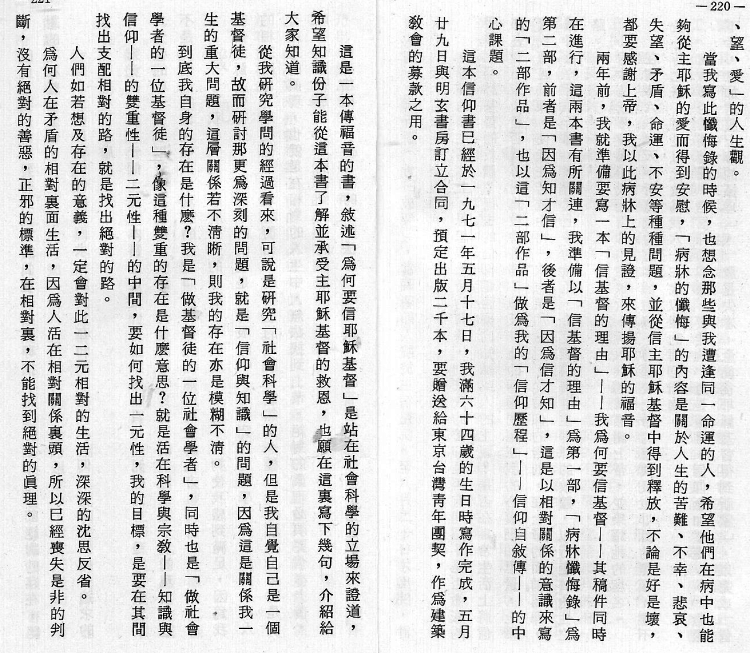 —220—
、望、愛」的人生觀。
當我寫此懺悔錄的時候，也想念那些與我遭逢同一命運的人，希望他們在病中也能
夠從主耶穌的愛而得到安慰，「病牀的懺悔」的內容是關於人生的苦難、不幸、悲哀、
失望、矛盾、命運、不安等種種問題，並從信主耶穌基督中得到釋放，不論是好是壞，
都要感謝上帝，我以此病牀上的見證，來傳揚耶穌的福音。
兩年前，我就準備要寫一本「信基督的理由」——我爲何要信基督——其稿件同時
在進行，這兩本書有所關連，我準備以「信基督的理由」爲第一部，「病牀懺悔錄」爲
第二部，前者是「因爲知才信」，後者是「因爲信才知」，這是以相對關係的意識來寫
的「二部作品」，也以這「二部作品」做爲我的「信仰歷程」——信仰自敘傳——的中
心課題。
這本信仰書已經於一九七一年五月十七日，我滿六十四歲的生日時寫作完成，五月
廿九日與明玄書房訂立合同，預定出版二千本，要贈送給東京台灣青年團契，作爲建築
教會的募款之用。
這是一本傳福音的書，敘述「爲何要信耶穌基督」是站在社會科學的立場來證道，
希望知識份子能從這本書了解並承受主耶穌基督的救恩，也願在這裏寫下幾句，介紹給
大家知道。
從我研究學問的經過看來，可說是研究「社會科學」的人，但是我自覺自己是一個
基督徒，故而研討那更爲深刻的問題，就是「信仰與知識」的問題，因爲這是關係我一
生的重大問題，這層關係若不清晰，則我的存在亦是模糊不清。
到底我自身的存在是什麼？我是「做基督徒的一位社會學者」，同時也是「做社會
學者的一位基督徒」，像這種雙重的存在是什麼意思？就是活在科學與宗教——知識與
信仰——的雙重性——二元性——的中間，要如何找出一元性，我的目標，是要在其間
找出支配相對的路，就是找出絕對的路。
人們如若想及存在的意義，一定會對此一二元相對的生活，深深的沈思反省。
爲何人在矛盾的相對裏面生活，因爲人活在相對關係裏頭，所以已經喪失是非的判
斷，沒有絕對的善惡，正邪的標準，在相對裏，不能找到絕對的眞理。